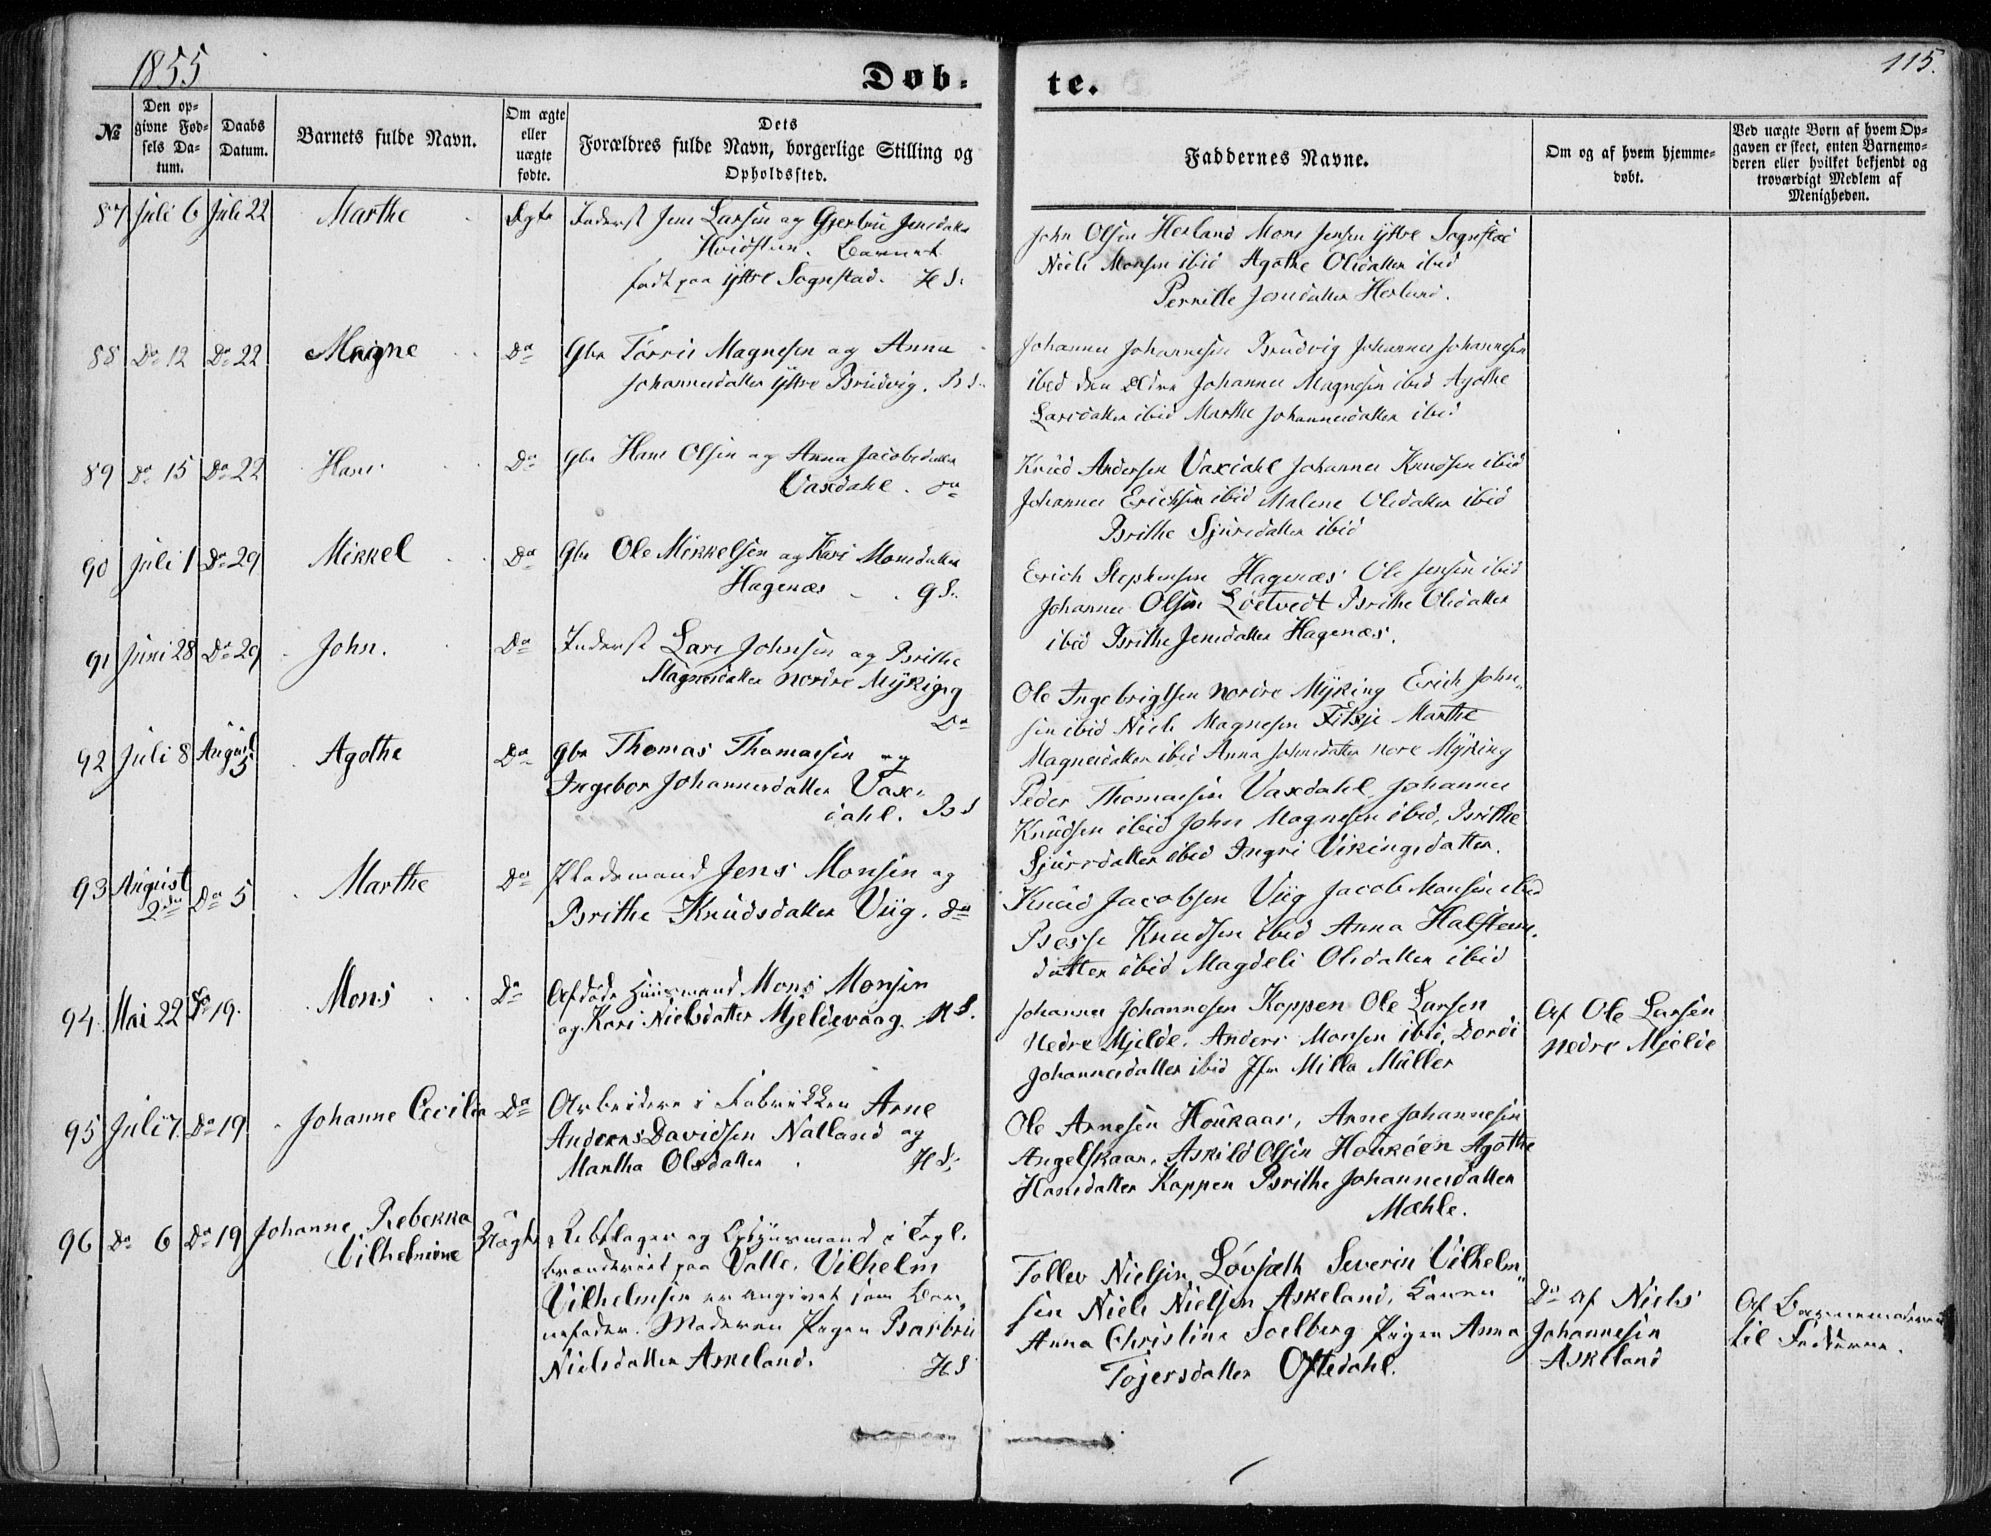 1855
Døb-
te.
115.
№
Den op-
givne Fød-
sels Da-
tum.
Daabs
Datum.
Barnets fulde Navn.
Om ægte
eller
uægte
fødte.
Dets
Forældres fulde Navn, borgerlige Stilling og
Opholdssted.
Faddernes Navne.
Om og af hvem hjemme-
døbt.
Ved uægte Børn af hvem Op-
gaven er skeet, enten Barnemo-
deren eller hvilket bekjendt og
troværdigt Medlem af
Menigheden.
87 Juli 6 Juli 22 Marthe Ægte Inderst Jens Larsen og Gjertrue Jensdatter
Hvidsteen. Barnet
født paa ÿttre Sognstad. HS.
John Olsen Herland Mons Jensen ÿttre Sognstad
Niels Monsen ibid Agothe Olsdatter ibid
Pernille Jensdatter Herland.
88 Do 12 Do 22 Magne Do Gbr Torris Magnesen og Anna
Johannesdatter ÿttre Brudvig. BS
Johannes Johannesen Brudvig Johannes Johannesen
ibid den Ældre Johannes Magnesen ibid Agothe
Larsdatter ibid Marthe Johannesdatter ibid
89 Do 15 Do 22 Hans Do Gbr Hans Olsen og Anna Jacobsdatter
Vaxdahl. do
Knud Andersen Vaxdahl Johannes Knudsen ibid
Johannes Erichsen ibid Malene Olsdatter ibid
Brithe Sjursdatter ibid
90 Juli 1 Do 29 Mikkel Do Gbr Ole Mikkelsen og Kari Monsdatter
Hagenæs GS.
Erich Stephensen Hagenæs Ole Jensen ibid
Johannes Olsen Löetvedt Brithe Olsdatter
ibid Brithe Jensdatter Hagenæs.
91 Juni 28 Do 29 John. Do Inderst Lars Johnsen og Brithe
Magnesdatter nordre Mÿking
Do
Ole Ingebrigtsen nordre Mÿking Erich John-
sen ibid Niels Magnesen Fitsje Marthe
Magnesdatter ibid Anna Johnsdatter nore Mÿking
92 Juli 8 August 5 Agothe Do Gbr Thomas Thomassen og
Ingebor Johannesdatter Vax-
dahl. BS
Peder Thomassen Vaxdahl, Johannes
Knudsen ibid John Magnesen ibid, Brithe
Sjursdatter ibid Ingri Vikingsdatter.
93 August 2den Do 5 Marthe Do Pladsmand Jens Monsen og
Brithe Knudsdatter Viig. do
Knud Jacobsen Viig Jacob Monsen ibid
Besse Knudsen ibid Anna Halsteins-
datter ibid Magdeli Olsdatter ibid
94. Mai 22 Do 19. Mons Do Afdøde Huusmand Mons Monsen
og Kari Nielsdatter Mjeldevaag. HS.
Johannes Johannesen Koppen Ole Larsen
Nedre Mjelde. Anders Monsen ibid, Dordi
Johannesdatter ibid Jfr Milla Müller
Af Ole Larsen
nedre Mjelde
95 Juli 7. Do 19 Johanne Cecilia Do Arbeidere i Fabrikken Arne
Anderns Davidsen Natland og
Martha Olsdatter. HS.
Ole Arnesen Houkaas, Arne Johannesen
Angelskaar. Askild Olsen Houkoen Agothe
Hansdatter Koppen Brithe Johannesdatter
Mæhle.
96 Do 6 Do 19 Johanne Rebekka
Vilhelmine Uægte Rebslager og i Tegl-
brænderiet paa Valle, Vilhelm
Vilhelmsen er angivet som Bar-
nefader. Moderen Pigen Barbru
Nielsdatter Askeland. HS
Tollev Nielsen, Løvsæth Severin Vilhelm-
sen Niels Nielsen Askeland, Konen
Anna Christine Soelberg Pigen Anna
Tøjersdatter Oftedahl.
Do af Niels
Johannesen
Askeland
Af Barnemoderen
til Fadderne.